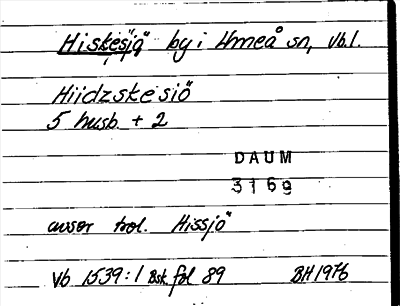 Hiskesjö by i Umeå sn, Vb.l.
Hiidzskesiö
5 husb. + 2
DAUM
3169
avser trol. Hissjö
Vb 1539:1 Bsk. fol 89 BH 1976